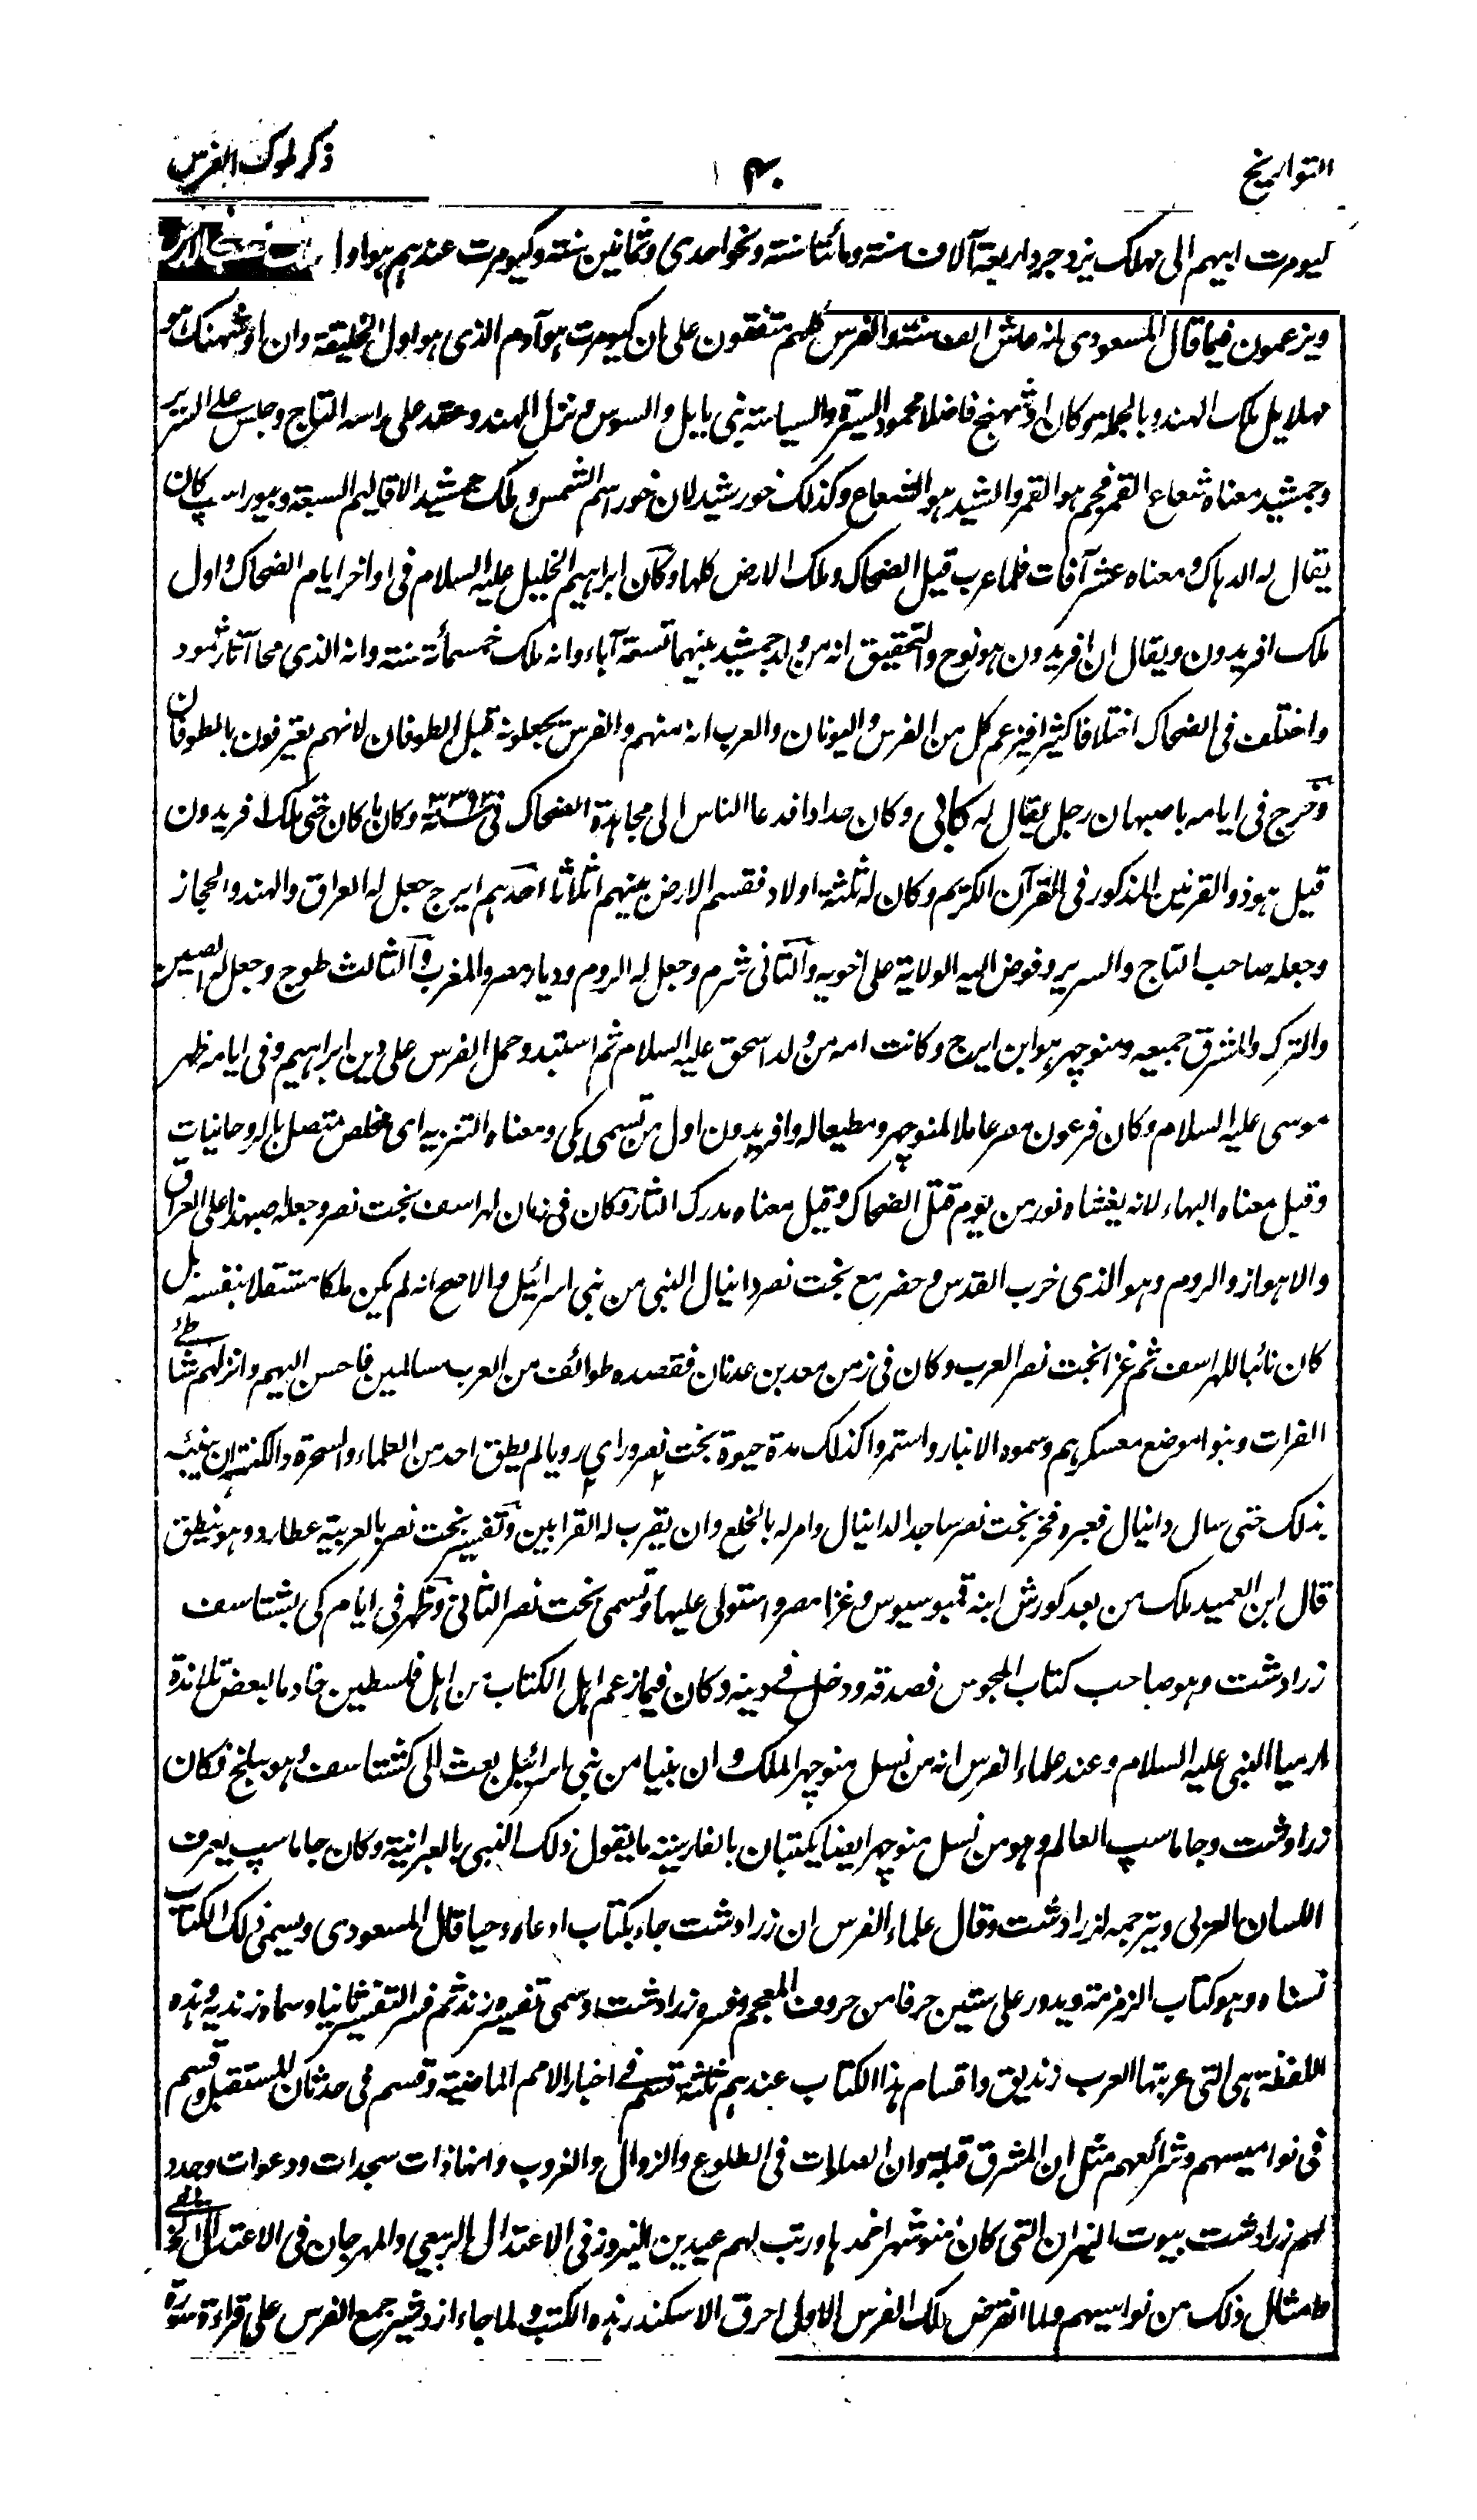 التواريخ
۴۰
ذكر ملوك الفرس
كيومرت ابيهم الى مهلك يزدجرد اربعة آلاف سنة ومائتا سنة ونحو احدى وثمانين سنة وكيومرت عندهم هو اول
ويزعمون فيما قال المسعودى انه عاش الف سنة والفرس كلهم متفقون على ان كيومرت هو آدم الذى هو اول الخليقة وان اوشهنك هو
مهلايل ملك الهند وبالجملة هو كان اوشهنج فاضلا محمود السيرة والسياسة بنى بابل والسوس ونزل الهند وعقد على راسه التاج وجلس على السرير
وجمشيد معناه شعاع القمر فجم هو القمر والشيد هو الشعاع وكذلك خورشيد لان خور اسم الشمس وملك جمشيد الاقاليم السبعة وبيوراسپ كان
يقال له الدهاك ومعناه عشر آفات فلما عرب قيل الضحاك وملك الارض كلها وكان ابراهيم الخليل عليه السلام فى اواخر ايام الضحاك واول
ملك افريدون ويقال ان افريدون هو نوح والتحقيق انه من ولد جمشيد بينهما تسعة آباء وانه ملك خمسمائة سنة وانه الذى محا آثار ثمود
واختلف فى الضحاك اختلافا كثيرا فيزعم كل من الفرس واليونان والعرب انه منهم والفرس يجعلونه قبل الطوفان لانهم يعترفون بالطوفان
وخرج فى ايامه باصبهان رجل يقال له كابى وكان حدادا فدعا الناس الى مجاهدة الضحاك فى سنة وكان ما كان حتى ملك افريدون
قيل هو ذو القرنين المذكور فى القرآن الكريم وكان له ثلثة اولاد فقسم الارض بينهم اثلاثا احدهم ايرج جعل له العراق والهند والحجاز
وجعله صاحب التاج والسرير وفوض اليه الولاية على اخويه والثانى شرم وجعل له الروم وديار مصر والمغرب والثالث طوج وجعل له الصين
والترك والمشرق جميعه ومنوچهر هو ابن ايرج وكانت امه من ولد اسحق عليه السلام ثم استبد وحمل الفرس على دين ابراهيم وفى ايامه ظهر
موسى عليه السلام وكان فرعون مصر عاملا لمنوچهر ومطيعا له وافريدون اول من تسمى بكى ومعناه التنزيه اى مخلص متصل بالروحانيات
وقيل معناه البهاء لانه يغشاه نور من يوم قتل الضحاك وقيل معناه مدرك الثار وكان فى زمان لهراسف بخت نصر وجعله اصبهذا على العراق
والاهواز والروم وهو الذى خرب القدس وحضر مع بخت نصر دانيال النبى من بنى اسرائيل والاصح انه لم يكن ملكا مستقلا بنفسه بل
كان نائبا للهراسف ثم غزا بخت نصر العرب وكان فى زمن معد بن عدنان فقصده طوائف من العرب مسالمين فاحسن اليهم وانزلهم شاطئ
الفرات وبنوا موضع معسكرهم وسموه الانبار واستمروا كذلك مدة حيوة بخت نصر وراى رويا لم يطق احد من العلماء والسحرة والكهنة ان ينبئه
بذلك حتى سال دانيال فعبره فخر بخت نصر ساجدا لدانيال وامر له بالخلع وان يقرب له القرابين وتفسير بخت نصر بالعربية عطارد وهو ينطق
قال ابن العميد ملك من بعد كورش ابنه قمبوسيوس وغزا مصر واستولى عليها وتسمى بخت نصر الثانى وظهر فى ايام كى بشتاسف
زرادشت وهو صاحب كتاب المجوس فصدقه ودخل فى دينه وكان فيما زعم اهل الكتاب من اهل فلسطين خادما لبعض تلامذة
ارميا النبى عليه السلام وعند علماء الفرس انه من نسل منوچهر الملك وان نبيا من بنى اسرائيل بعث الى كشتاسف وهو ببلخ فكان
زرادشت وجاماسپ العالم وهو من نسل منوچهر ايضا يكتبان بالفارسية ما يقول ذلك النبى بالعبرانية وكان جاماسپ يعرف
اللسان العربى ويترجمه لزرادشت وقال علماء الفرس ان زرادشت جاء بكتاب ادعاه وحيا قال المسعودى ويسمى ذلك الكتاب
نسناه وهو كتاب الزمزمة ويدور على ستين حرفا من حروف المعجم وفسره زرادشت وسمى تفسيره زند ثم فسر التفسير ثانيا وسماه زنديه وهذه
اللفظة هى التى عربتها العرب زنديق واقسام هذا الكتاب عندهم ثلثة قسم فى اخبار الامم الماضية وقسم فى حدثان المستقبل وقسم
فى نواميسهم وشرائعهم مثل ان المشرق قبلة وان الصلوات فى الطلوع والزوال والغروب وانها ذات سجدات ودعوات وجدد
لهم زرادشت بيوت النيران التى كان منوشهر اخمدها ورتب لهم عيدين النيروز فى الاعتدال الربيعى والمهرجان فى الاعتدال الخريفى
وامثال ذلك من نواميسهم ولما انقرض ملك الفرس الاول احرق الاسكندر هذه الكتب ولما جاء ازدشير جمع الفرس على قراءة سورة